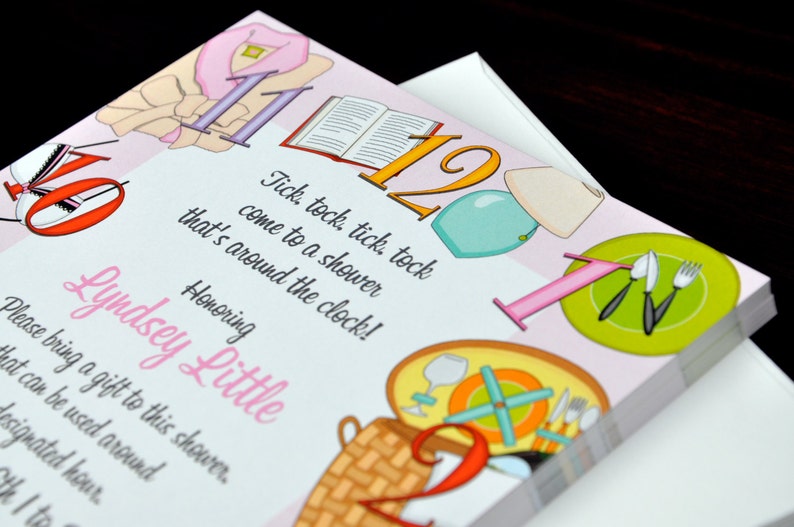 11
12
10
1
2
Tick, tock, tick, tock
come to a shower
that's around the clock!
Honoring
Lyndsey Little
Please bring a gift to this shower,
that can be used around
designated hour.
1 to